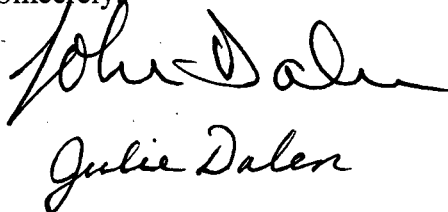 Sincerely,
John Dalen
Julie Dalen